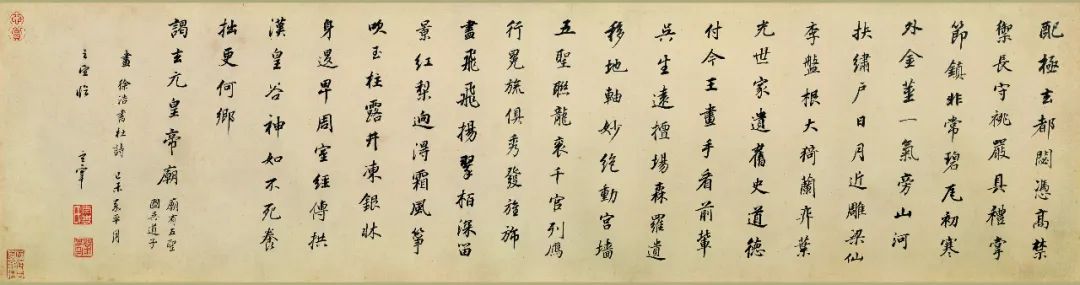 配極玄都閟憑高禁
禦長守祧嚴具禮掌
節鎮非常碧瓦初寒
外金莖一氣旁山河
扶繡戶日月近雕梁仙
李盤根大猗蘭奕葉
光世家遺舊史道德
付今王畫手看前輩
吳生遠擅場森羅遺
移地軸妙絕動宮牆
五聖聯龍袞千官列鴈
行冕旒俱秀發旌旆
盡飛飛揚翠柏深留
景紅梨迥得霜風箏
吹玉柱露井凍銀牀
身退卑周室經傳拱
漢皇谷神如不死養
拙更何鄉
謁玄元皇帝廟
廟有五聖
圖吳道子
畫 徐浩書杜詩 己未嘉平月
玄宰臨 玄宰